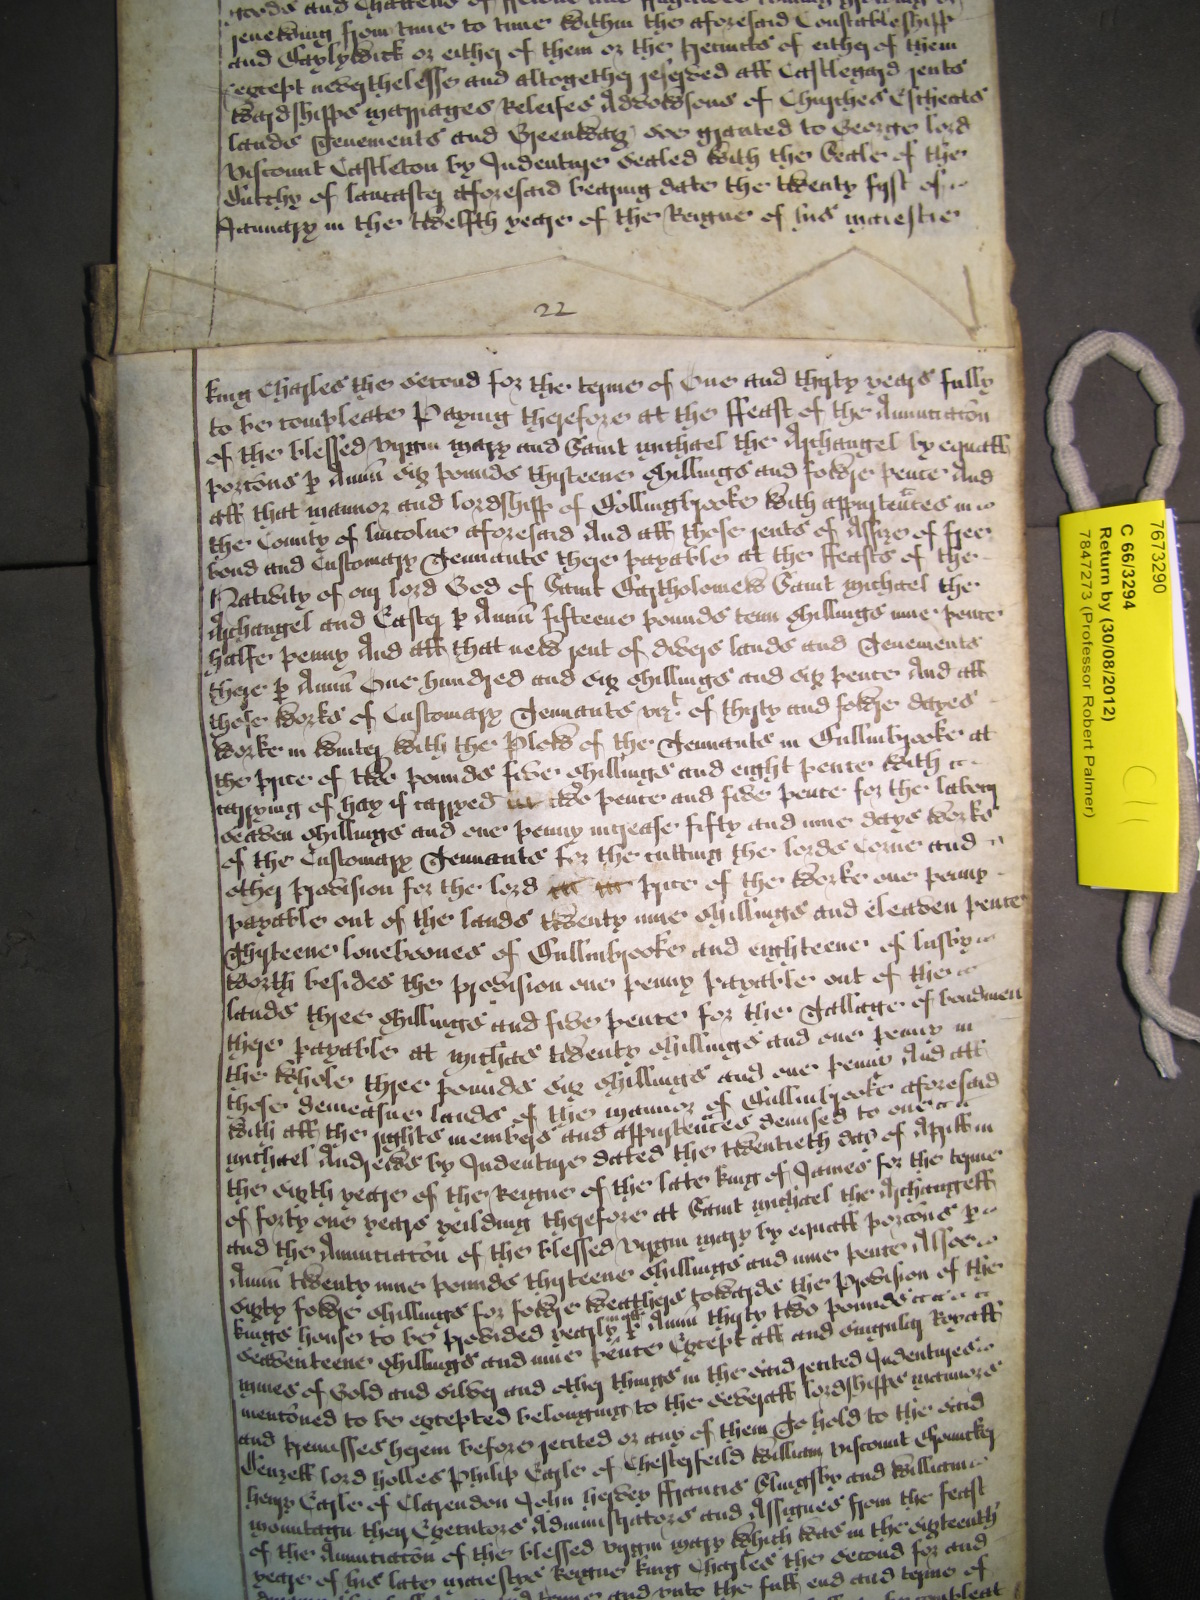 goods and Chattells of
renewing from time to time within the aforesaid Constableshipp
and Baylywick or either of them or the precincts of either of them
except neverthelesse and altogether reserved all Castlegard rents
wardshipps marriages Releifes Advowsons of Churches Escheats
lands Tenements and Greenwax soe granted to George lord
viscount Castleton by Indenture sealed with the Seale of the
Dutchy of lancaster aforesaid bearing date the twenty fyrst of
January in the twelfth yeare of the Reigne of his maiestie
22
king Charles the second for the terme of One and thirty years fully
to be compleate Paying therefore at the ffeast of the Annunciacon
of the blessed virgin mary and Saint michael the Archangel by equall
porcons p Annu six pounds thirteene shillings and fowre pence And
all that mannor and lordshipp of Bollingbrooke with appurtences in
the County of lincolne aforesaid And all those rents of Assize of free
bond and Customary Tennants there payable at the ffeasts of the
Nativity of our lord God of Saint Bartholomew Saint michael the
Archangel and Easter p Annu fifteene pounds tenn shillings nine pence
halfe penny And all that new rent of divers lands and Tenements
there p Annu One hundred and six shillings and six pence And all
those works of Customary Tennants vizt of thirty and fowre dayes
worke in winter with the Plow of the Tennants in Bullinbrooke at
the price of two pounds five shillings and eight pence with
carrying of hay if carryed two pence and five pence for the labor
seaven shillings and one penny increase fifty and nine days works
of the Customary Tennants for the cutting the lords Corne and
other provision for the lord price of the worke one penny
payable out of the lands twenty nine shillings and eleaven pence
Thirteene loneboones of Bullinbrooke and eighteene of lusby
worth besides the provision one penny payable out of the
lands three shillings and five pence for the Tallage of bondmen
there payable at michas twenty shillings and one penny in
the whole three pounds six shillings and one penny And all
those demeasne lands of the mannor of Bullinbrooke aforesaid
with all the rights members and appurtences demised to one
michael Andrews by Indenture dated the twentieth day of Aprill in
the sixth yeare of the Reigne of the late king of James for the terme
of forty one years yeilding therefore at Saint michael the Archangell
and the Annunciacon of the blessed virgin mary by equall porcons p
Annu twenty nine pounds thirteene shillings and nine pence Alsoe
sixty fowre shillings for fowre weathers towards the Provision of the
kings house to be provided yearly in all p Annu thirty two pounds
seaventeene shillings and nine pence Except all and singular Royall
mines of Gold and silver and other things in the said recited Indentures
mentoned to be excepted belonging to the severall lordshipps mannors
and premisses herein before recited or any of them To hold to the said
Denzell lord holles Philip Earle of Chesterfeild William viscount Brouncker
henry Earle of Clarendon John hervey ffrancis Slingsby and William
mountagu their Executors Administrators and Assignes from the feast
of the Annunciacon of the blessed virgin mary which was in the sixteenth
yeare of his late maiestyes Reigne king Charles the second for and
and terme and unto the full end and terme of
7673290
C 66/3294
Return by (30/08/2012)
7847273 (Professor Robert Palmer)
C11